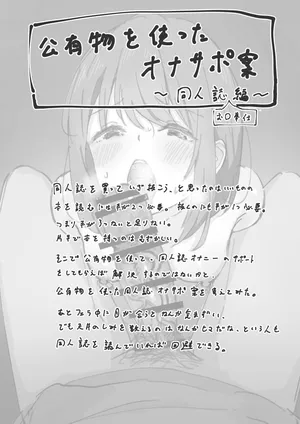 公有物を使った
オナサポ案
〜同人誌編〜
お口奉仕
同人誌を買っていざ抜こう、と思ったのはいいものの
本を読むには片手が2つ必要。抜くのにも片手が1つ必要。
つまり手が3つないと足りない。
片手で本を持つのはむずかしい。
そこで公有物を使って、同人誌オナニーのサポート
をしてもらえば解決するのではないかと、
公有物を使った同人誌オナサポ案を考えてみた。
あとフェラ中に目が会うとなんか気まずい、
でも天井のしみを数えるのはなんかもったいないな、という人も
同人誌を読んでいれば回避できる。